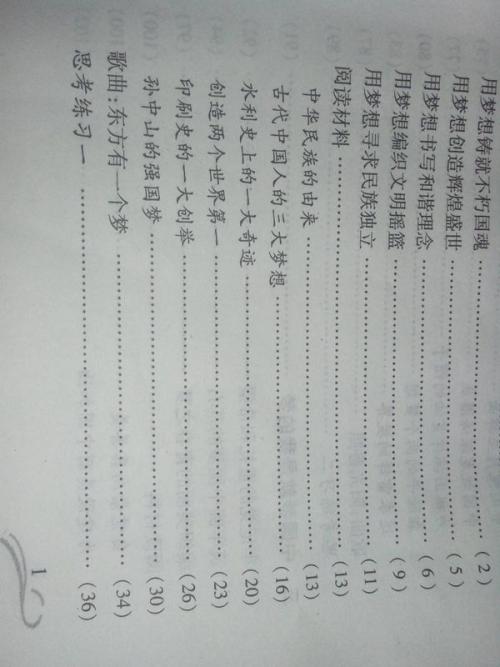 用梦想铸就不朽国魂……………………(2)
用梦想创造辉煌盛世……………………(5)
用梦想书写和谐理念……………………(6)
用梦想编织文明摇篮……………………(9)
用梦想寻求民族独立……………………(11)
阅读材料……………………(13)
中华民族的由来……………………(13)
古代中国人的三大梦想……………………(16)
水利史上的一大奇迹……………………(20)
创造两个世界第一……………………(23)
印刷史的一大创举……………………(26)
孙中山的强国梦……………………(30)
歌曲:东方有一个梦……………………(34)
思考练习一……………………(36)
1